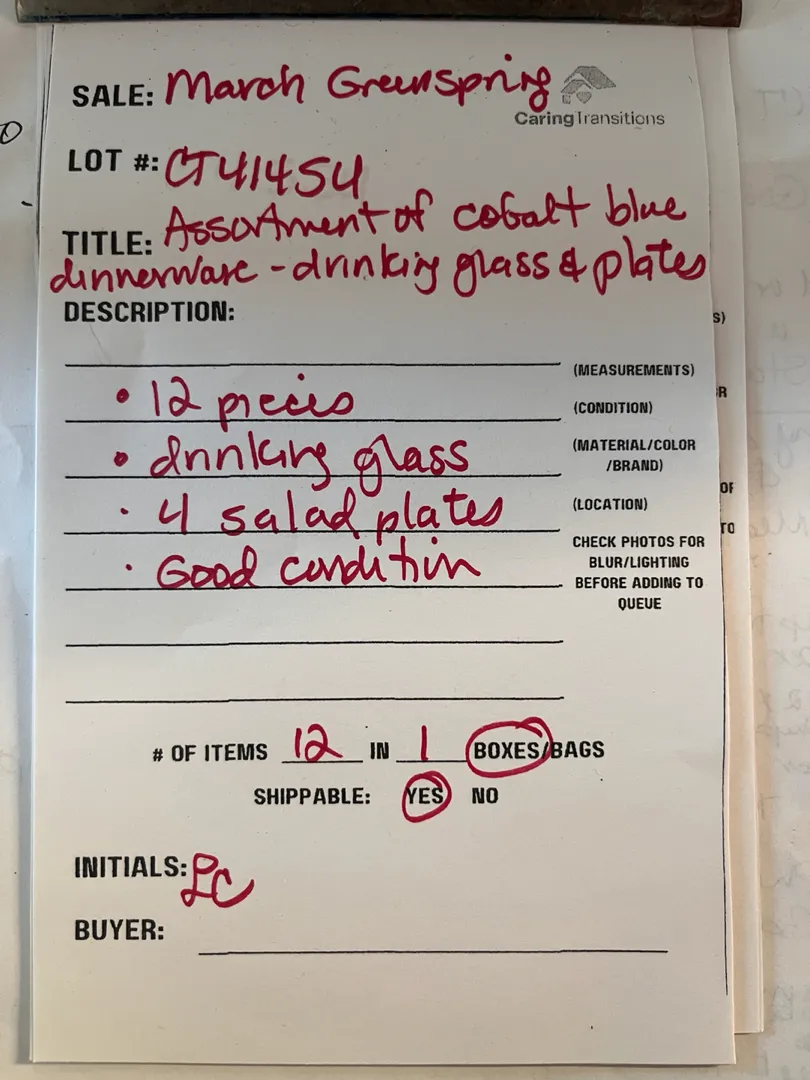 SALE: March Greenspring
CaringTransitions
LOT #: CT41454
TITLE: Assortment of cobalt blue
dinnerware - drinking glass & plates
DESCRIPTION:
(MEASUREMENTS)
• 12 pieces
(CONDITION)
• drinking glass
(MATERIAL/COLOR
/BRAND)
• 4 salad plates
(LOCATION)
• Good condition
CHECK PHOTOS FOR
BLUR/LIGHTING
BEFORE ADDING TO
QUEUE
# OF ITEMS 12 IN 1 BOXES/BAGS
SHIPPABLE: YES NO
INITIALS: LC
BUYER:
S)
R
OF
TO